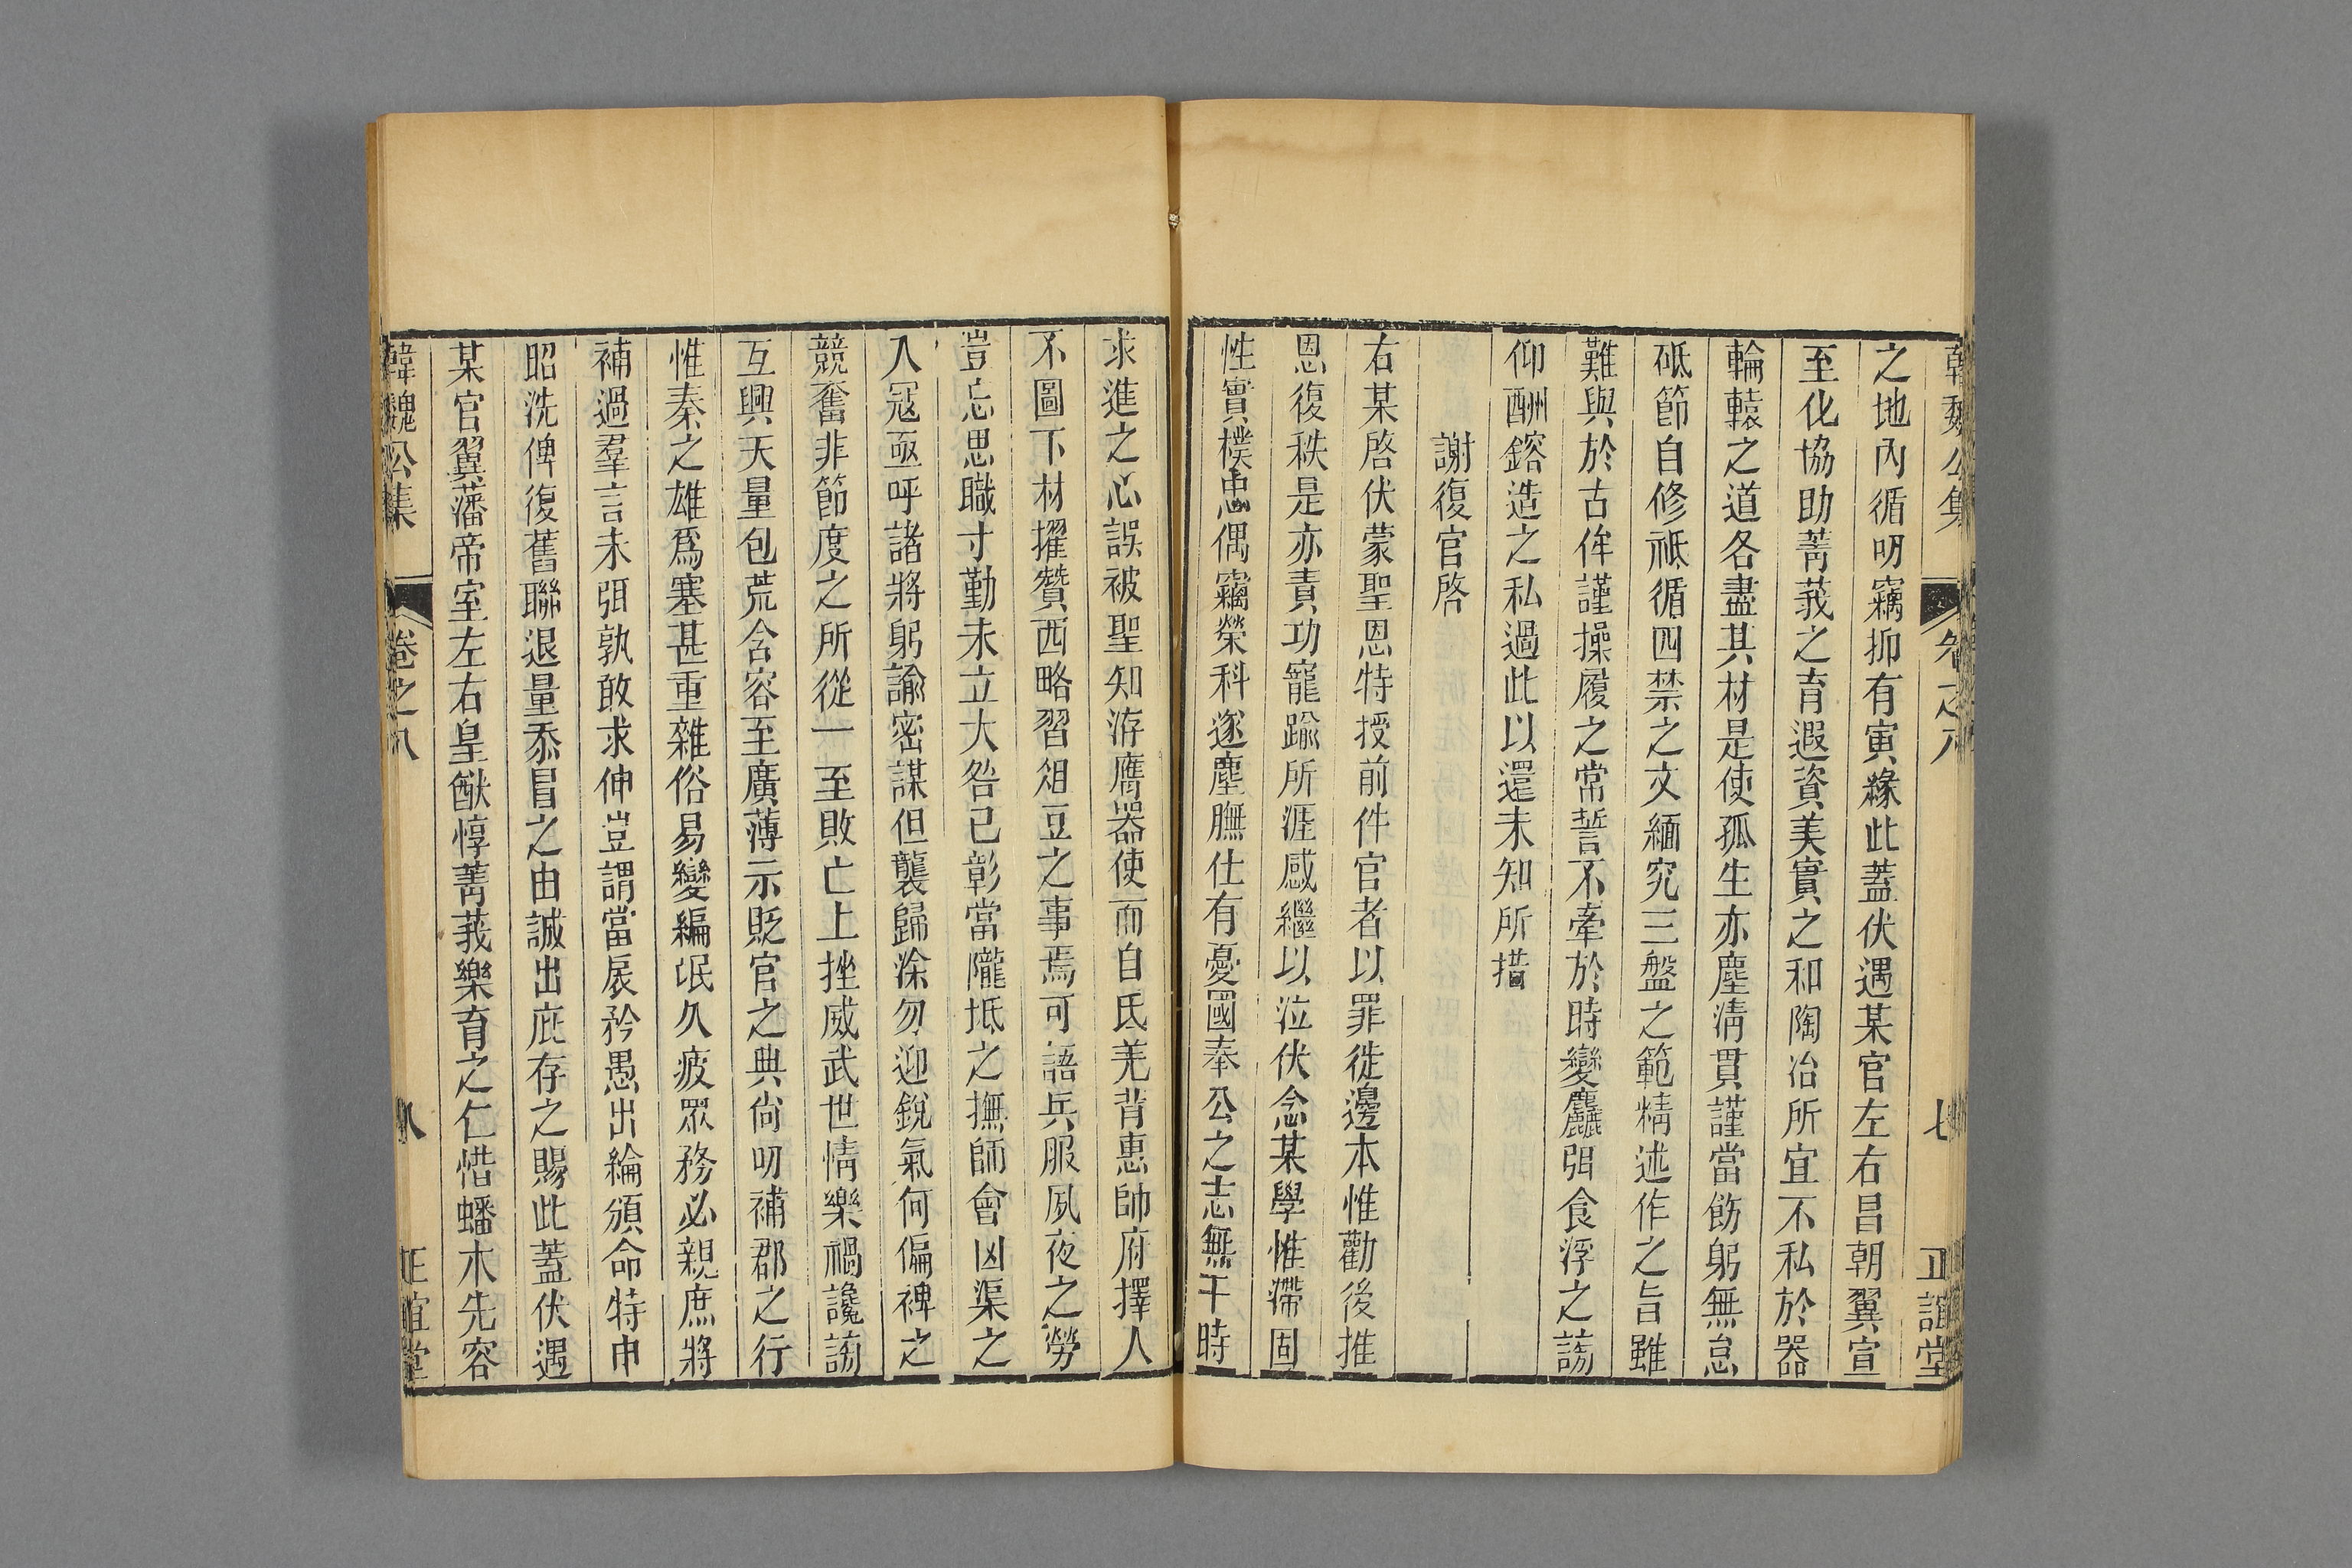 韓魏公集 卷之八 七 正誼堂
之地內循叨竊抑有寅緣此蓋伏遇某官左右昌朝翼宣
至化協助菁莪之育遐資美實之和陶冶所宜不私於器
輪轅之道各盡其材是使孤生亦塵淸貫謹當飭躬無怠
砥節自修祗循四禁之文緬究三盤之範精述作之旨雖
難與於古侔謹操履之常誓不牽於時變麤弭食浮之謗
仰酬鎔造之私過此以還未知所措
謝復官啓
右某啓伏蒙聖恩特授前件官者以罪徙邊本惟勸後推
恩復秩是亦責功寵踰所涯感繼以泣伏念某學惟滯固
性實樸忠偶竊榮科遂塵膴仕有憂國奉公之志無干時
求進之心誤被聖知洊膺器使而自氐羌背惠帥府擇人
不圖下材擢贊西略習俎豆之事焉可語兵服夙夜之勞
豈忘思職寸勤未立大咎已彰當隴坻之撫師會凶渠之
入冦亟呼諸將躬諭密謀但襲歸涂勿迎銳氣何偏裨之
競奮非節度之所從一至敗亡上挫威武世情樂禍讒謗
互興天量包荒含容至廣薄示貶官之典尙叨補郡之行
惟秦之雄爲塞甚重雜俗易變編氓久疲眾務必親庶將
補過羣言未弭孰敢求伸豈謂當扆矜愚出綸頒命特申
昭洗俾復舊聯退量忝冒之由誠出庇存之賜此蓋伏遇
某官翼藩帝室左右皇猷惇菁莪樂育之仁惜蟠木先容
韓魏公集 卷之八 八 正誼堂